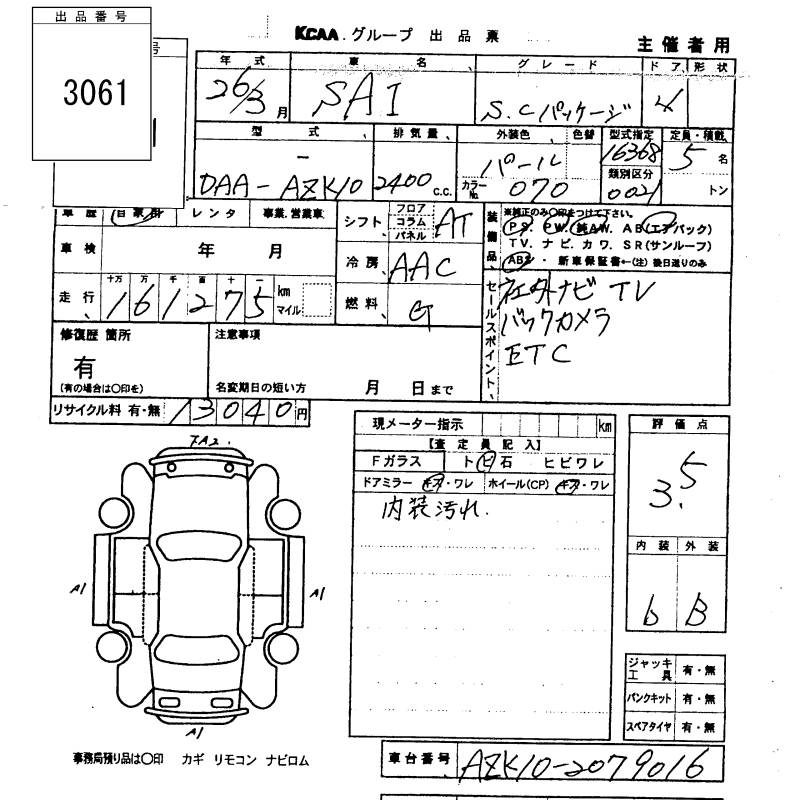 出品番号
3061
号
KCAA グループ 出品票
主催者用
年式 車名 グレード ドア 形状
26/3月 SAI S.Cパッケージ 4
型式 排気量 外装色 色替 型式指定 定員・積載
DAA-AZK10 2400 c.c. パール カラーNo. 070 16368 5名
類別区分 0021 トン
車歴 自家用 レンタ 事業・営業車
シフト フロア コラム パネル AT
装備品 ※純正のみ〇印をつけて下さい。
P.S. P.W. 純A.W. A.B(エアバック)
T.V. ナビ. カワ. S.R(サンルーフ)
ABS・新車保証書←(注)後日送りのみ
車検 年 月
冷房 AAC
走行 十万 万 千 百 十 一
161275 km マイル
燃料 G
セールスポイント
社外ナビ TV
バックカメラ
ETC
修復歴 箇所
有
(有の場合は〇印を)
注意事項
名変期日の短い方 月 日まで
リサイクル料 有・無 13040円
現メーター指示 km
【査定員記入】
Fガラス トビ石 ヒビワレ
ドアミラー キズ・ワレ ホイール(CP) キズ・ワレ
内装汚れ.
評価点
3.5
内装 外装
b B
A1
A1
A1
ジャッキ工具 有・無
パンクキット 有・無
スペアタイヤ 有・無
事務局預り品は〇印 カギ リモコン ナビロム
車台番号 AZK10-2079016